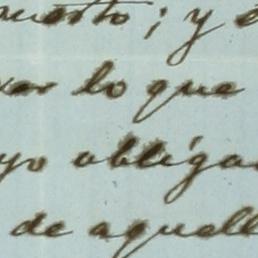 puesto; y e
xar lo que
yo obliga
de aquell